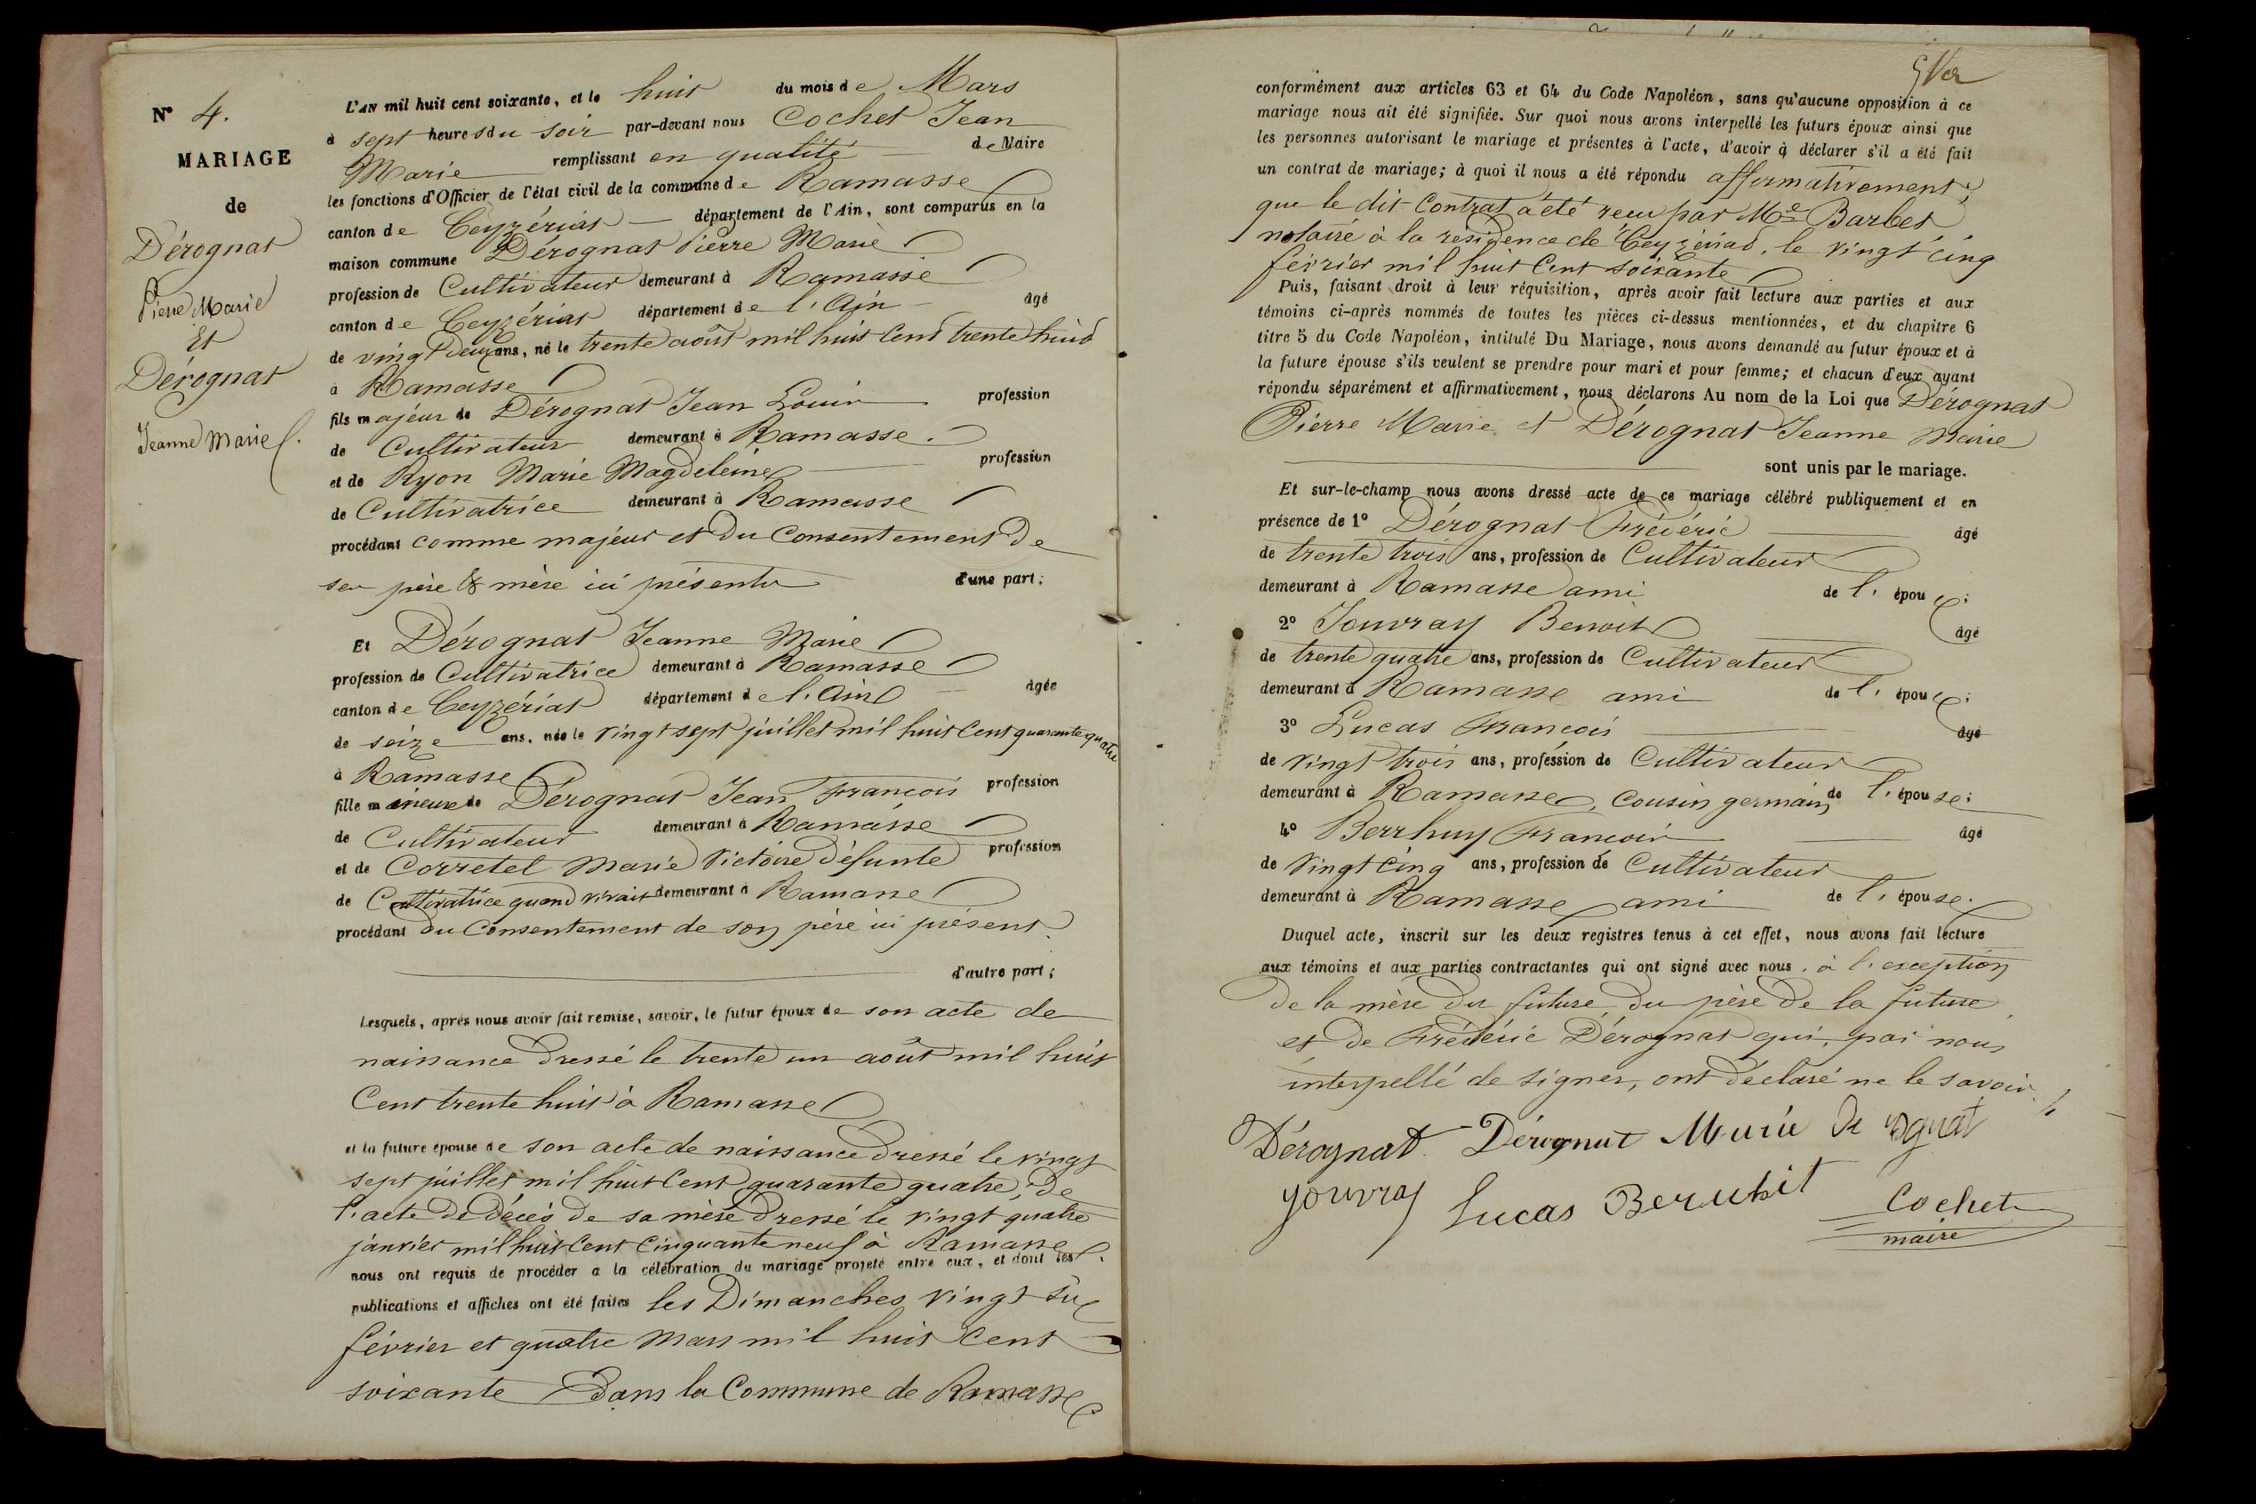 N° 4.
MARIAGE
de
Dérognat
Pierre Marie
Et
Dérognat
Jeanne Marie
L'AN mil huit cent soixante, et le huit du mois de Mars
à sept heures du soir par-devant nous Cochet Jean
Marie remplissant en qualité de Maire
les fonctions d'Officier de l'état civil de la commune de Ramasse
canton de Ceyzériat département de l'Ain, sont comparus en la
maison commune Dérognat Pierre Marie
profession de Cultivateur demeurant à Ramasse
canton de Ceyzériat département de l'Ain âgé
de vingt deux ans, né le trente août mil huit cent trente huit
à Ramasse
fils majeur de Dérognat Jean Louis profession
de Cultivateur demeurant à Ramasse.
et de Ryon Marie Magdeleine profession
de Cultivatrice demeurant à Ramasse
procédant comme majeur et du Consentement de
ses père & mère ici présents d'une part;
Et Dérognat Jeanne Marie
profession de Cultivatrice demeurant à Ramasse
canton de Ceyzériat département de l'Ain âgée
de seize ans, née le vingt sept juillet mil huit cent quarante quatre
à Ramasse
fille mineure de Dérognat Jean François profession
de Cultivateur demeurant à Ramasse
et de Corretel Marie Victoire défunte profession
de Cultivatrice quand vivait demeurant à Ramasse
procédant du Consentement de son père ici présent.
d'autre part;
Lesquels, après nous avoir fait remise, savoir, le futur époux de son acte de
naissance dressé le trente un août mil huit
Cent trente huit à Ramasse
et la future épouse de son acte de naissance dressé le vingt
sept juillet mil huit Cent quarante quatre, de
l'acte de décès de sa mère dressé le vingt quatre
janvier mil huit Cent Cinquante neuf à Ramasse.
nous ont requis de procéder à la célébration du mariage projeté entre eux, et dont les
publications et affiches ont été faites les Dimanches vingt six
février et quatre mars mil huit cent
soixante Dans la Commune de Ramasse
conformément aux articles 63 et 64 du Code Napoléon, sans qu'aucune opposition à ce
mariage nous ait été signifiée. Sur quoi nous avons interpellé les futurs époux ainsi que
les personnes autorisant le mariage et présentes à l'acte, d'avoir à déclarer s'il a été fait
un contrat de mariage; à quoi il nous a été répondu affirmativement;
que le dit Contrat a été reçu par Me Barbet
notaire à la résidence de Ceyzériat, le vingt cinq
février mil huit Cent soixante
Puis, faisant droit à leur réquisition, après avoir fait lecture aux parties et aux
témoins ci-après nommés de toutes les pièces ci-dessus mentionnées, et du chapitre 6
titre 5 du Code Napoléon, intitulé Du Mariage, nous avons demandé au futur époux et à
la future épouse s'ils veulent se prendre pour mari et pour femme; et chacun d'eux ayant
répondu séparément et affirmativement, nous déclarons Au nom de la Loi que Dérognat
Pierre Marie et Dérognat Jeanne Marie
sont unis par le mariage.
Et sur-le-champ nous avons dressé acte de ce mariage célébré publiquement et en
présence de 1° Dérognat Frédéric âgé
de trente trois ans, profession de Cultivateur
demeurant à Ramasse ami de l'époux;
2° Jouvray Benoit âgé
de trente quatre ans, profession de Cultivateur
demeurant à Ramasse ami de l'époux;
3° Lucas François âgé
de vingt trois ans, profession de Cultivateur
demeurant à Ramasse, Cousin germain de l'épouse;
4° Berrhuy François âgé
de vingt Cinq ans, profession de Cultivateur
demeurant à Ramasse ami de l'épouse.
Duquel acte, inscrit sur les deux registres tenus à cet effet, nous avons fait lecture
aux témoins et aux parties contractantes qui ont signé avec nous, à l'exception
de la mère du futur, du père de la future
et de Frédéric Dérognat qui, par nous
interpellé de signer, ont déclaré ne le savoir.
Dérognat Dérognat Marie
Jouvray Lucas Cochet
maire